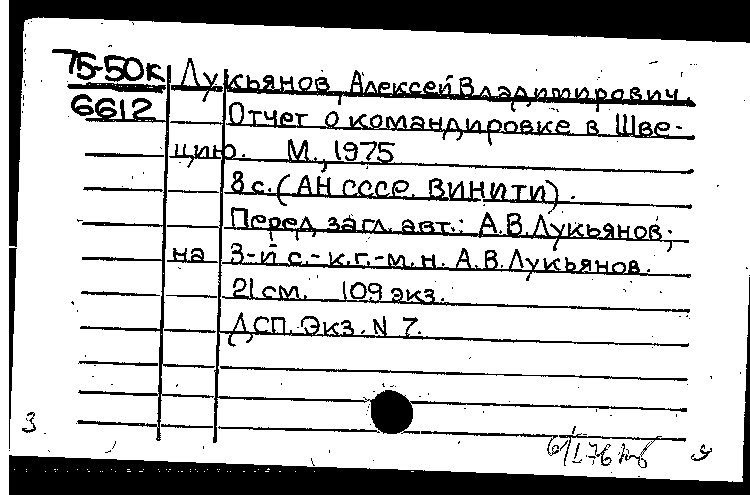 75-50к Лукьянов, Алексей Владимирович.
6612 Отчет о командировке в Шве-
цию. М., 1975
8 с. (АН СССР. ВИНИТИ).
Перед загл. авт.: А.В.Лукьянов;
на 3-й с.- к.г.-м.н. А.В.Лукьянов.
21 см. 109 экз.
ДСП. Экз. N 7.
3